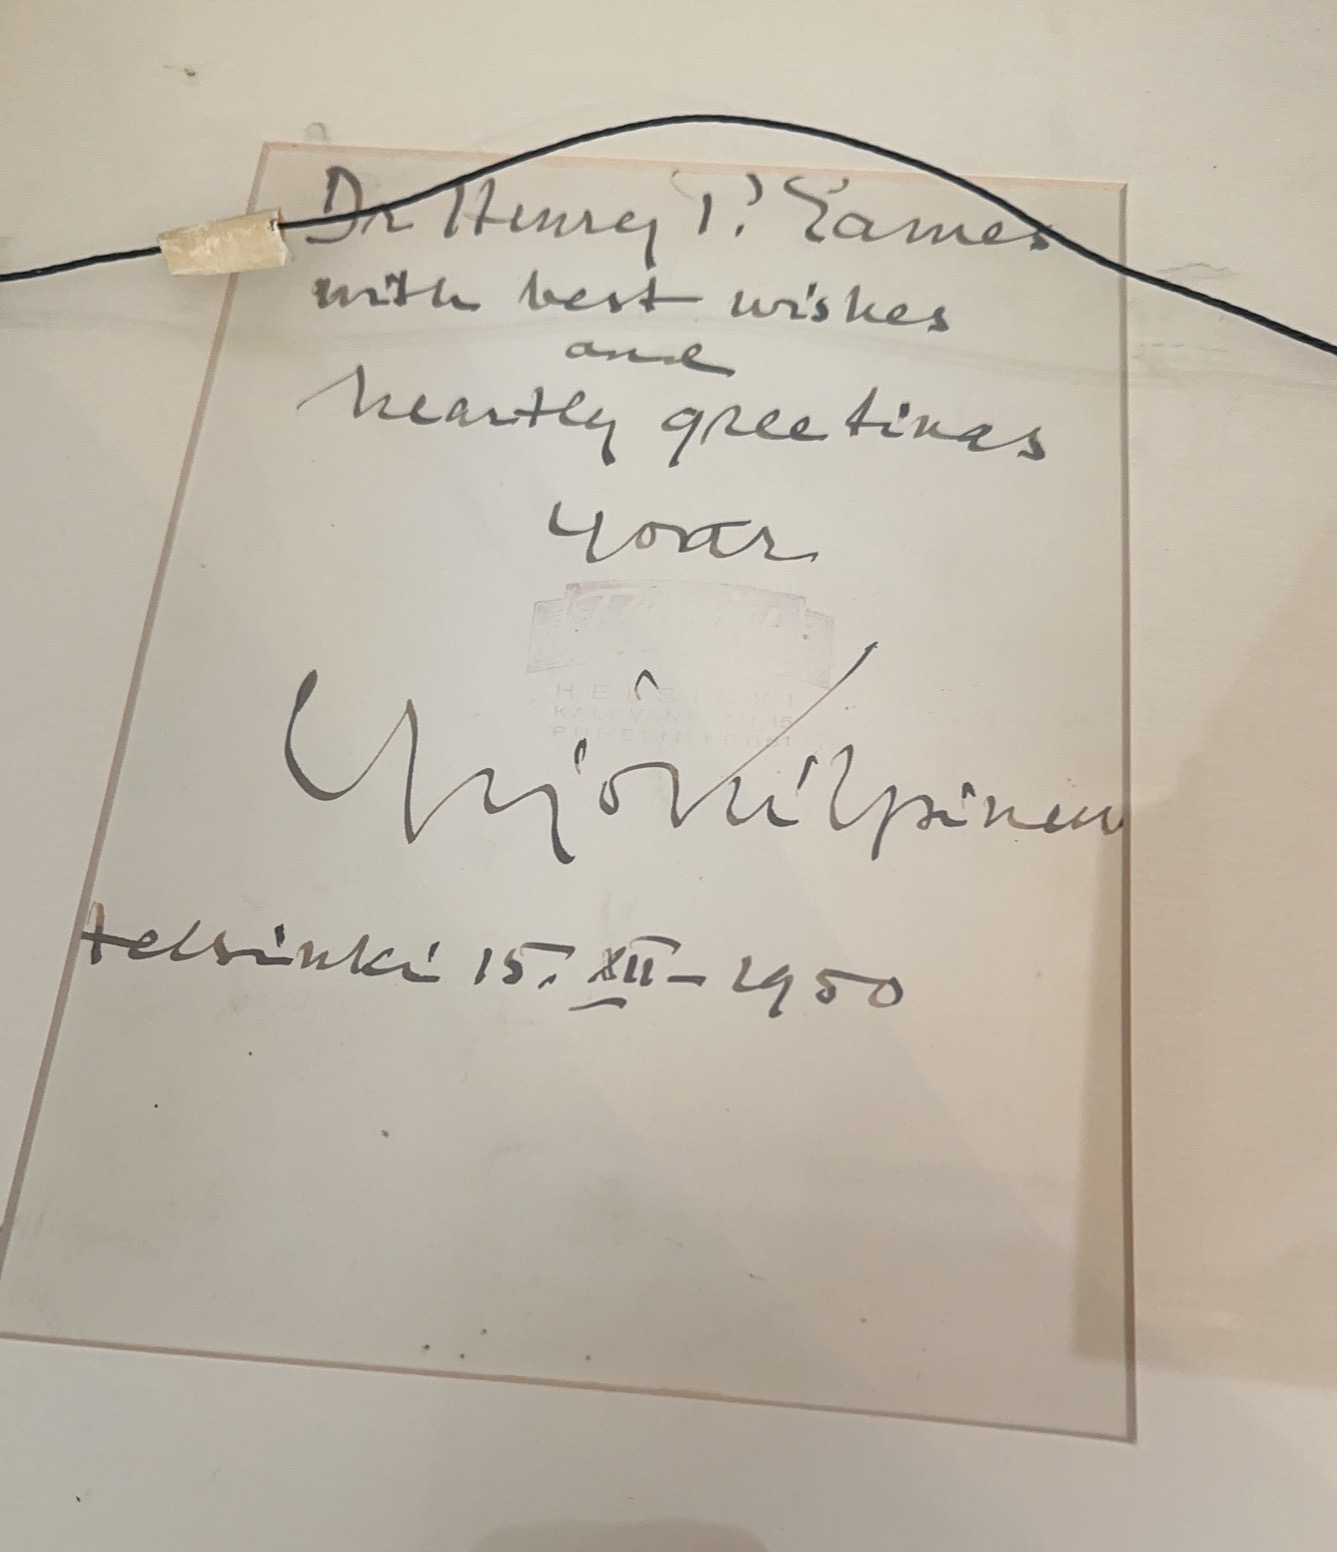 Dr Henry P. Eames
with best wishes
and
heartly greetings
Your
HELSINKI
Yrjö Kilpinen
Helsinki 15. XII – 1950